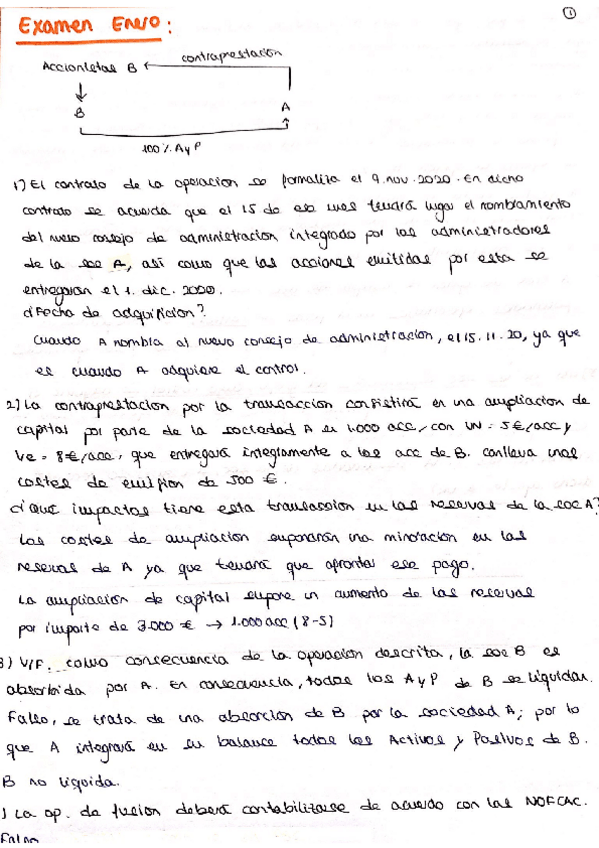 1
Examen Enero:
contraprestación
Accionistas B
B A
100% A y P
1) El contrato de la operación se formaliza el 9.nov.2020. En dicho
contrato se acuerda que el 15 de ese mes tendrá lugar el nombramiento
del nuevo consejo de administración integrado por los administradores
de la soc A, así como que las acciones emitidas por esta se
entregaran el 1. dic. 2020.
¿Fecha de adquisición?
Cuando A nombra al nuevo consejo de administración, el 15.11.20, ya que
es cuando A adquiere el control.
2) La contraprestación por la transacción consistirá en una ampliación de
capital por parte de la sociedad A en 1.000 acc, con VN = 5€/acc y
Ve = 8€/acc, que entregará integramente a los acc de B. Conlleva unos
costes de emisión de 500 €.
¿Qué impactos tiene esta transacción en las reservas de la soc A?
Los costes de ampliación supondrán una minoración en las
reservas de A ya que tendrá que afrontar ese pago.
La ampliación de capital supone un aumento de las reservas
por importe de 3.000 € → 1.000 acc (8-5)
3) V/F. como consecuencia de la operación descrita, la soc B es
absorbida por A. En consecuencia, todos los A y P de B se liquidan.
Falso, se trata de una absorción de B por la sociedad A; por lo
que A integrará en su balance todos los Activos y Pasivos de B.
B no liquida.
) La op. de fusión deberá contabilizarse de acuerdo con las NOFCAC.
Falso